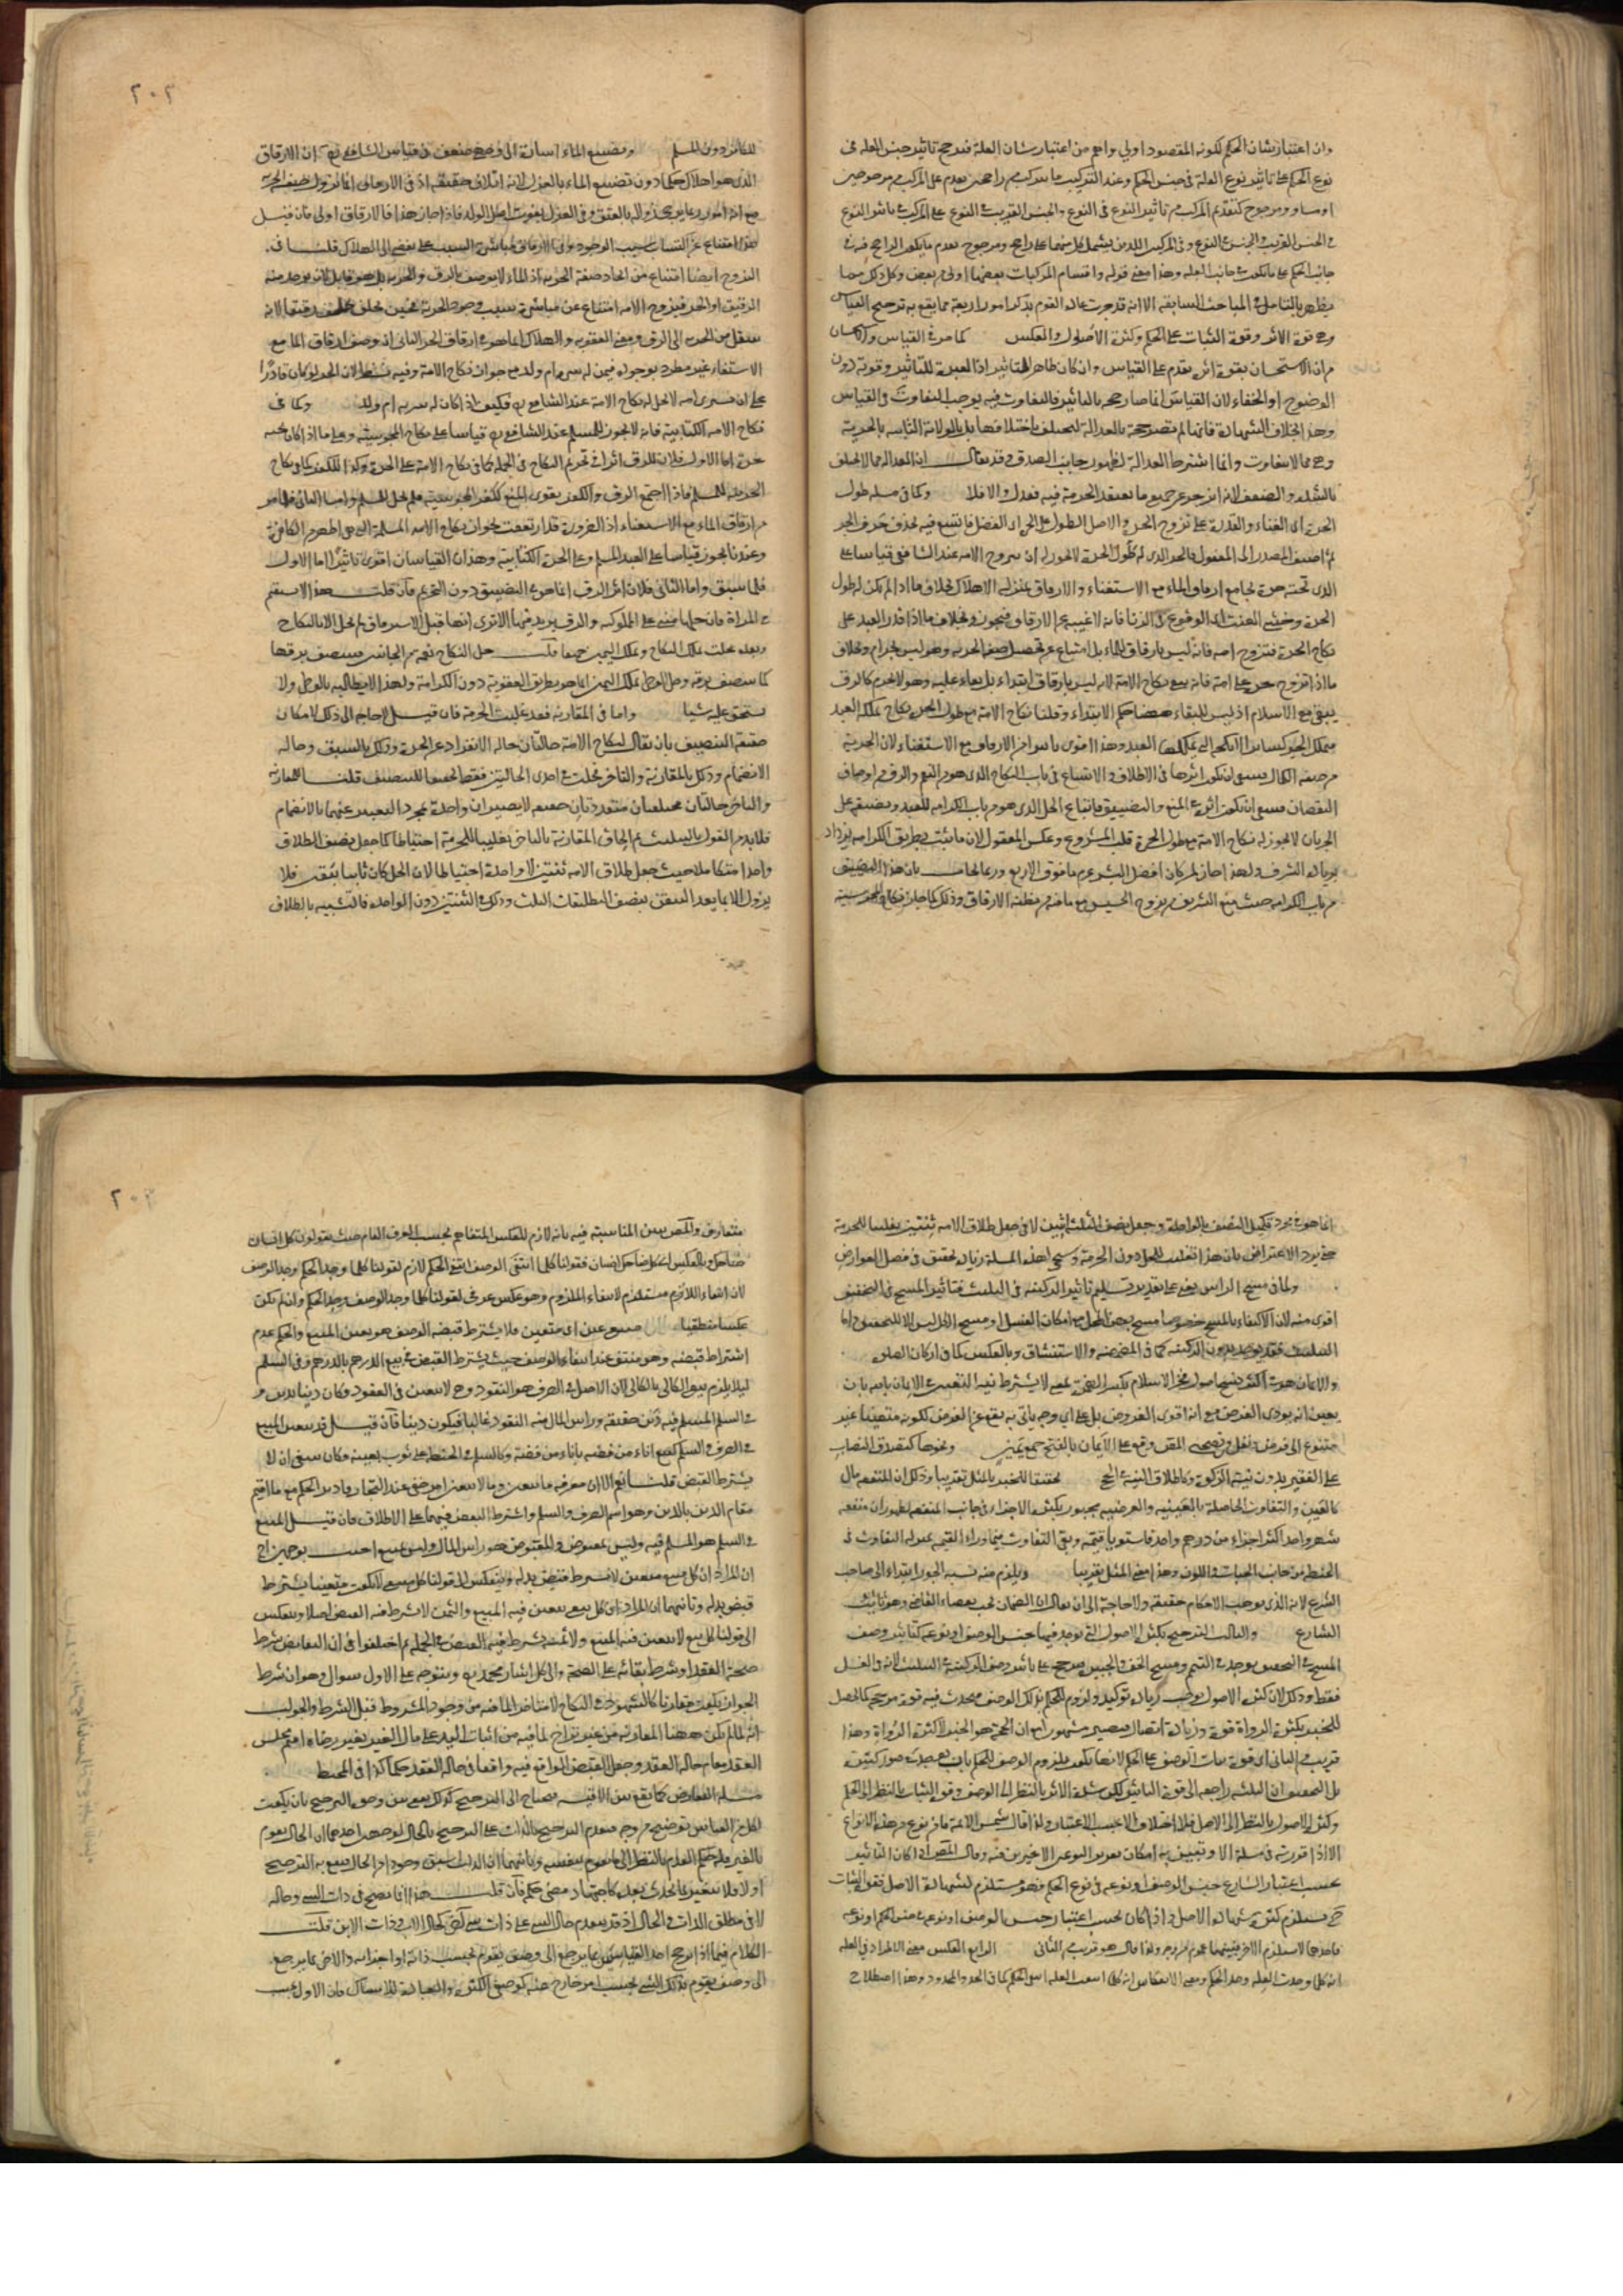 وان اعتبار شان الحكم لكونه المقصود اولى واهم من اعتبار شان العلة فيرجح تاثير جنس العلة في
نوع الحكم على تاثير نوع العلة في جنس الحكم وعند التركيب ما يتركب من راجحين يقدم على المركب من مرجوحين
او مساو ومرجوح كتقديم المركب من تاثير النوع في النوع والجنس القريب في النوع على المركب من تاثير النوع
في الجنس القريب والجنس في النوع وفي المركبين اللذين يشتمل كل منهما على راجح ومرجوح يقدم ما يكون الراجح فيه في
جانب الحكم على ما يكون في جانب العلة وهذا معنى قوله واقسام المركبات بعضها اولى من بعض وكل ذلك مما
يظهر بالتامل في المباحث السابقة الا انه قد جرت عادة القوم بذكر امور اربعة مما يقع به ترجيح القياس
وهي قوة الاثر وقوة الثبات على الحكم وكثرة الاصول والعكس كما مر في القياس والاستحسان
من ان الاستحسان بقوة اثره يقدم على القياس وان كان ظاهر التاثير اذ العبرة للتاثير وقوته دون
الوضوح او الخفاء لان القياس انما صار حجة بالتاثير فالتفاوت فيه يوجب التفاوت في القياس
وهذا بخلاف الشهادة فانها لم تصر حجة بالعدالة لتختلف باختلافها بل بالولاية الثابتة بالحرية
وهي مما لا يتفاوت وانما اشترط العدالة لظهور جانب الصدق وقد يقال ان العدالة مما لا يختلف
بالشدة والضعف لانه ان انزجر عن جميع ما يعتقد الحرمة فيه فعدل والا فلا وكما في مسئلة طول
الحرة اى الغناء والقدرة على تزوج الحرة والاصل الطول على الحرة اى الفضل فاتسع فيه بحذف حرف الجر
ثم اضيف المصدر الى المفعول فالحر الذى له طول الحرة لا يجوز له ان يتزوج الامة عند الشافعى قياسا على
الذى تحته حرة بجامع ارقاق الماء مع الاستغناء والارقاق بمنزلة الاهلاك بخلاف ما اذا لم يكن له طول
الحرة وخشى العنت اى الوقوع في الزنا فانه لا غنية عن الارقاق فيجوز وبخلاف ما اذا قدر العبد على
نكاح الحرة فتزوج امة فانه ليس بارقاق للماء بل امتناع عن تحصيل صفة الحرية وهو ليس بحرام وبخلاف
ما اذا تزوج حرة على امة فانه يبقى نكاح الامة لانه ليس بارقاق ابتداء بل بقاء عليه وهو لا يحرم كالرق
يبقى مع الاسلام اذ ليس للبقاء حكم الابتداء وقلنا نكاح الامة مع طول الحرة نكاح يملكه العبد
فيملكه الحر كسائر الانكحة التى يملكها العبد وهذا اقوى تاثيرا من الارقاق مع الاستغناء لان الحرية
من صفة الكمال فينبغى ان يكون اثرها في الاطلاق والاتساع في باب النكاح الذى هو من النعم والرق من اوصاف
النقصان فينبغى ان يكون اثره في المنع والتضييق فاتساع الحل الذى هو من باب الكرامة للعبد وتضييقه على
الحر بان لا يجوز له نكاح الامة مع طول الحرة قلب المشروع وعكس المعقول لان ما يثبت بطريق الكرامة يزداد
بزيادة الشرف ولهذا جاز لمن كان افضل البشر عم ما فوق الاربع وربما يجاب بان هذا التضييق
من باب الكرامة حيث منع الشريف من تزوج الخسيس مع ما فيه من مظنة الارقاق وذلك كما جاز نكاح المجوسية
٢٠٢
للكافر دون المسلم وتضييع الماء اشارة الى وجه ضعف في قياس الشافعى اى ان الارقاق
الذى هو اهلاك حكما دون تضييع الماء بالعزل لانه اتلاف حقيقة اذ في الارقاق انما تزول صفة الحرية
مع انه امر ربما يرجى زواله بالعتق وفي العزل يفوت اصل الولد فاذا جاز هذا فالارقاق اولى فان قيل
هذا امتناع عن اكتساب سبب الوجود وفي الارقاق مباشرة السبب على وجه يفضى الى الهلاك قلنا في
التزوج ايضا امتناع عن ايجاد صفة الحرية اذ الماء لا يوصف بالرق والحرية بل هو قابل لان يوجد منه
الرقيق او الحر فتزوج الامة امتناع عن مباشرة سبب وجود الحرية فحين يخلق يخلق رقيقا لا انه
ينتقل من الحرية الى الرق ومعنى العقوبة والهلاك انما هو في ارقاق الحر الثانى ان وصف ارقاق الماء مع
الاستغناء غير مطرد لوجوده فيمن له سرية او ام ولد مع جواز نكاح الامة وفيه نظر لان الحر لو كان قادرا
على ان يشترى امة لا تحل له نكاح الامة عند الشافعى رح فكيف اذا كان له سرية او ام ولد وكما في
نكاح الامة الكتابية فانه لا يجوز للمسلم عند الشافعى رح قياسا على نكاح المجوسية وعلى ما اذا كان تحته
حرة اما الاول فلان للرق اثرا في تحريم النكاح في الجملة كما في نكاح الامة على الحرة وكذا للكفر كما في نكاح
الحربية للمسلم فاذا اجتمع الرق والكفر يقوى المنع ككفر المجوسية فلم يحل للمسلم واما الثانى فلما مر
من ارقاق الماء مع الاستغناء اذ الضرورة قد ارتفعت بجواز نكاح الامة المسلمة التى هى اطهر من الكافرة
وعندنا يجوز قياسا على العبد المسلم وعلى الحرة الكتابية وهذان القياسان اقوى تاثيرا اما الاول
فلما سبق واما الثانى فلان اثر الرق انما هو في التنصيف دون التحريم فان قلت هذا لا يستقيم
في المراة فان حلها مبنى على المملوكية والرق يزيد فيها الا ترى انها قبل الاسترقاق لم تحل الا بالنكاح
وبعده تحل بملك النكاح وبملك اليمين جميعا قلت حل النكاح نعمة من الجانبين فيتنصف برقها
كما يتنصف برقه وحل الوطئ بملك اليمين انما هو بطريق العقوبة دون الكرامة ولهذا لا تطالبه بالوطئ ولا
تستحق عليه شيئا واما في المقارنة فقد غلبت الحرمة فان قيل لا حاجة الى ذلك لامكان
حقيقة التنصيف بان يقال لنكاح الامة حالتان حالة الانفراد عن الحرة وذلك بالسبق وحالة
الانضمام وذلك بالمقارنة والتاخر فحلت في احدى الحالتين فقط تحقيقا للتنصيف قلنا المقارنة
والتاخر حالتان مختلفتان متعددتان حقيقة لا تصيران واحدة بمجرد التعبير عنهما بالانضمام
فلا بد من القول بالتثليث ثم الحاق المقارنة بالتاخر تغليبا للحرمة احتياطا كما جعل نصف الطلاق
واحدا متكاملا حيث جعل طلاق الامة ثنتين لا واحدة احتياطا لان الحل كان ثابتا بيقين فلا
يزول الا بما يعد التيقن بنصف التطليقات الثلث وذلك في الثنتين دون الواحدة فالتشبيه بالطلاق
انما هو في مجرد تكميل النصف بالواحد وجعل نصف الثلث اثنين لا في جعل طلاق الامة ثنتين تغليبا للحرمة
حتى يرد الاعتراض بان هذا تغليب للحل دون الحرمة وسيجئ لهذه المسئلة زيادة تحقيق في فصل العوارض
وكما في مسح الراس يعنى على تقدير تسليم تاثير الركنية في التثليث فتاثير المسح في التخفيف
اقوى منه لان الاكتفاء بالمسح خصوصا مسح بعض المحل مع امكان الغسل او مسح الكل ليس الا للتخفيف واما
التثليث فقد يوجد بدون الركنية كما في المضمضة والاستنشاق وبالعكس كما في اركان الصلوة
والايمان هو في اكثر نسخ اصول فخر الاسلام بكسر الهمزة يعنى لا يشترط نية التعيين في الايمان بالله بان
يعين انه يؤدى الفرض مع انه اقوى الفروض بل على اى وجه ياتى به يقع عن الفرض لكونه متعينا غير
متنوع الى فرض ونفل وفي نسخة المصنف وقع على الايمان بالفتح جمع يمين ونحوها كتصدق النصاب
على الفقير بدون نية الزكوة وكاطلاق النية في الحج تحقيقا للجبر بالمثل تقريبا وذلك ان المنفعة مال
كالعين والتفاوت الحاصل بالعينية والعرضية مجبور بكثرة الاجزاء في جانب المنفعة لظهور ان منفعة
شهر واحد اكثر اجزاء من درهم واحد فاستويا قيمة وبقى التفاوت فيما وراء القيمة بمنزلة التفاوت في
الحنطة من جانب الحبات واللون وهذا معنى المثل تقريبا ويلزم منه نسبة الجور ابتداء الى صاحب
الشرع لانه الذى يوجب الاحكام حقيقة ولا حاجة الى ان يقال ان الضمان يجب بقضاء القاضى وهو نائب
الشارع والثالث الترجيح بكثرة الاصول التى يوجد فيها جنس الوصف او نوعه كتاثير وصف
المسح في التخفيف يوجد في التيمم ومسح الخف والجبيرة فيرجح على تاثير وصف الركنية في التثليث لانه في الغسل
فقط وذلك لان كثرة الاصول توجب زيادة توكيد ولزوم للحكم بذلك الوصف فيحدث فيه قوة مرجحة كما يحصل
للخبر بكثرة الرواة قوة وزيادة اتصال فيصير مشهورا مع ان الحجة هو الخبر لا كثرة الرواة وهذا
قريب من الثانى اى قوة ثبات الوصف على الحكم لانها يكون بلزوم الوصف للحكم بان يوجد في صور كثيرة
بل التحقيق ان الثلثة راجعة الى قوة التاثير لكن شدة الاثر بالنظر الى الوصف وقوة الثبات بالنظر الى الحكم
وكثرة الاصول بالنظر الى الاصل فلا اختلاف الا بحسب الاعتبار ولذا قال شمس الائمة ما من نوع من هذه الانواع
الا اذا قررته في مسئلة الا وتبين به امكان تقرير النوعين الاخيرين فيه وقال المص اذا كان التاثير
بحسب اعتبار الشارع جنس الوصف او نوعه في نوع الحكم فهو مستلزم لشهادة الاصل فقوة الثبات
ح يستلزم كثرة شهادة الاصل واذا كان بحسب اعتبار جنس الوصف او نوعه في جنس الحكم او نوعه
فاحدهما لا يستلزم الاخر فبينهما عموم من وجه ولذا قال هو قريب من الثانى الرابع العكس معنى الاطراد في العلة
انه كلما وجدت العلة وجد الحكم ومعنى الانعكاس انه كلما انتفت العلة انتفى الحكم كما في الحد والمحدود وهذا اصطلاح
٢٠٣
متعارف والمص بين المناسبة فيه بانه لازم للعكس المتفاهم بحسب العرف العام حيث يقولون كل انسان
ضاحك وبالعكس اى كل ضاحك انسان فقولنا كلما انتفى الوصف انتفى الحكم لازم لقولنا كلما وجد الحكم وجد الوصف
لان انتفاء اللازم مستلزم لانتفاء الملزوم وهو عكس عرفى لقولنا كلما وجد الوصف وجد الحكم وان لم يكن
عكسا منطقيا مبيع عين اى متعين فلا يشترط قبضه الوصف هو تعين المبيع والحكم عدم
اشتراط قبضه وهو منتف عند انتفاء الوصف حيث يشترط القبض في بيع الدرهم بالدرهم وفي السلم
ليلا يلزم بيع الكالى بالكالى لان الاصل في الصرف هو النقود وهى لا تتعين في العقود فكان دينا بدين و
في السلم المسلم فيه دين حقيقة وراس المال من النقود غالبا فيكون دينا فان قيل قد يتعين المبيع
في الصرف والسلم كبيع اناء من فضة باناء من فضة وكالسلم في الحنطة على ثوب بعينه فكان ينبغى ان لا
يشترط القبض قلنا نعم الا ان معرفة ما يتعين وما لا يتعين امر خفى عند التجار فادير الحكم مع ما اقيم
مقام الدين بالدين وهو اسم الصرف والسلم واشترط القبض فيهما على الاطلاق فان قيل المبيع
في السلم هو المسلم فيه وليس بمقبوض والمقبوض هو راس المال وليس بمبيع اجيب بوجهين احدهما
ان المراد ان كل مبيع متعين لا يشترط قبض بدله وينعكس الى قولنا كل مبيع لا يكون متعينا يشترط
قبض بدله وثانيهما ان المراد ان كل بيع يتعين فيه المبيع والثمن لا يشترط فيه القبض اصلا وينعكس
الى قولنا كل بيع لا يتعين فيه المبيع ولا ثمنه يشترط فيه القبض في الجملة ثم اختلفوا في ان التقابض شرط
صحة العقد او شرط بقائه على الصحة والى كل اشار محمد رح ويتوجه على الاول سوال وهو ان شرط
الجواز يكون مقارنا كالشهود في النكاح لا متاخرا لما فيه من وجود المشروط قبل الشرط والجواب
انه لما لم يكن ههنا المقارنة من غير تراخ لما فيه من اثبات اليد على مال الغير بغير رضاه اقيم مجلس
العقد مقام حالة العقد وجعل القبض الواقع فيه واقعا في حالة العقد حكما كذا في المحيط
مسئلة التعارض كما يقع بين الاقيسة فيحتاج الى الترجيح كذلك يقع بين وجوه الترجيح بان يكون
لكل من القياسين ترجيح من وجه فيقدم الترجيح بالذات على الترجيح بالحال لوجهين احدهما ان الحال يقوم
بالغير فله حكم العدم بالنظر الى ما يقوم بنفسه وثانيهما ان الذات اسبق وجودا من الحال فيقع به الترجيح
اولا فلا يتغير بما يحدث بعده كاجتهاد مضى حكمه فان قلت هذا انما يصح في ذات الشئ وحاله
لا في مطلق الذات والحال اذ قد يتقدم حال الشئ على ذات شئ اخر كحال الاب وذات الابن قلت
الكلام فيما اذا ترجح احد القياسين بما يرجع الى وصف يقوم بحسب ذاته او اجزائه والاخر بما يرجع
الى وصف يقوم بذلك الشئ بحسب امر خارج عنه كوصفى الكثرة والعبادة للامساك فان الاول بحسب